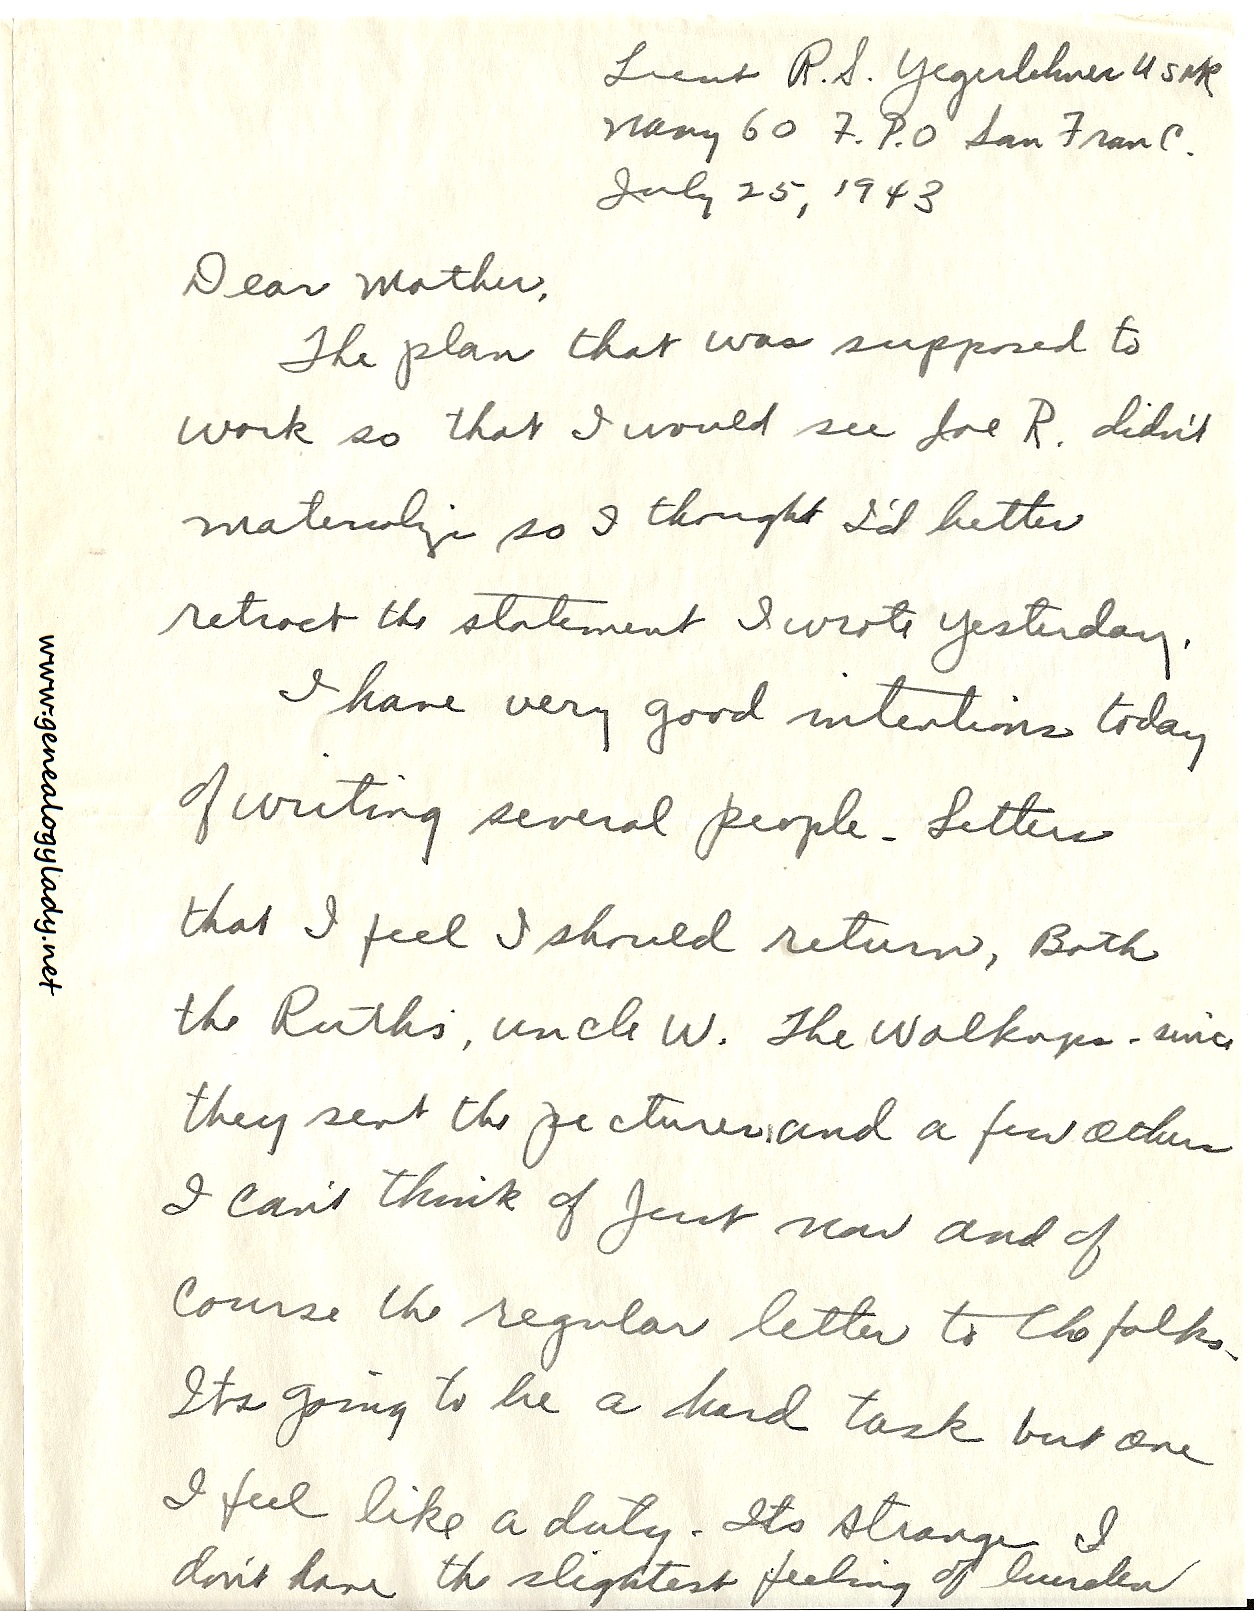 Lieut R.S. Yegerlehner USNR
Navy 60 F.P.O San Fran C.
July 25, 1943
Dear Mother,
The plan that was supposed to
work so that I would see Joe R. didn't
materialize so I thought I'd better
retract the statement I wrote yesterday.
I have very good intentions today
of writing several people - Letters
that I feel I should return, Both
the Ruths, uncle W. The Walkups - since
they sent the pictures, and a few others
I can't think of just now and of
course the regular letter to the folks.
Its going to be a hard task but one
I feel like a duty - Its strange I
don't have the slightest feeling of burden
www.genealogylady.net